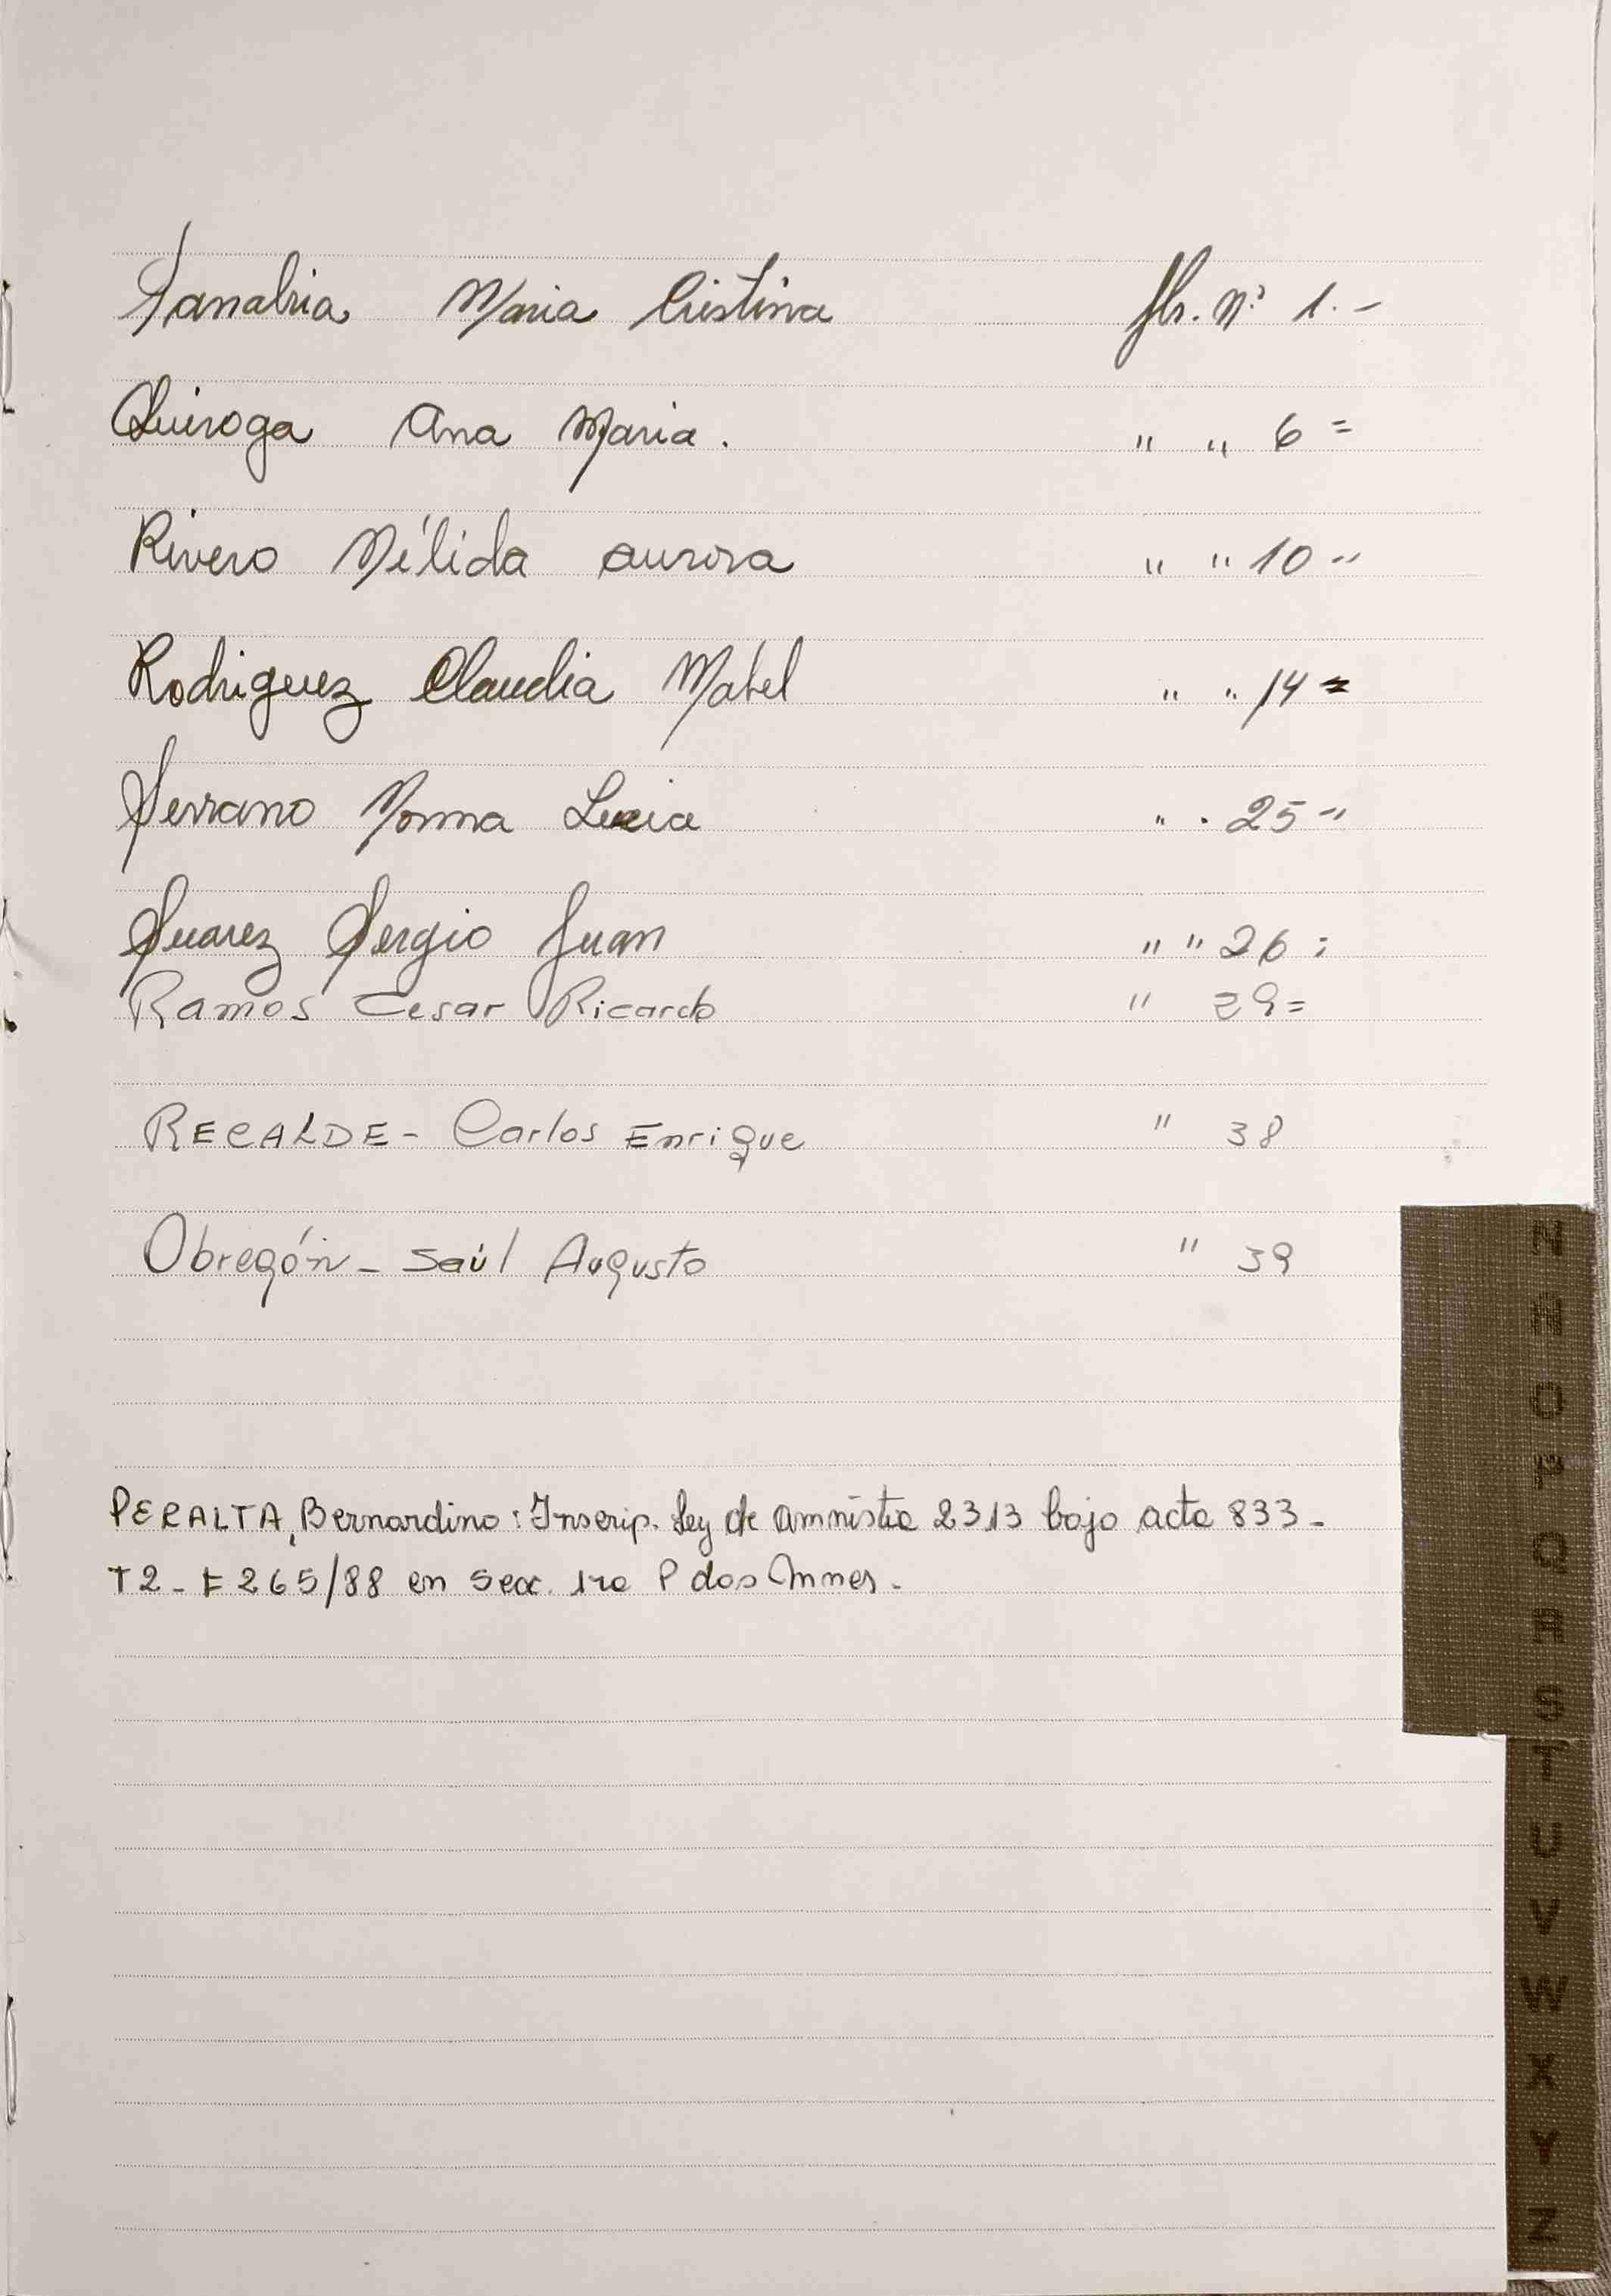 Sanabria Maria Cristina fls. Nº 1.-
Quiroga Ana Maria. " " 6 =
Rivero Nélida aurora " " 10 "
Rodriguez Claudia Mabel " " 14 =
Serrano Norma Lucia " " 25 "
Suarez Sergio Juan " " 26 :
Ramos Cesar Ricardo " 29 =
RECALDE - Carlos Enrique " 38
Obregón - Saúl Augusto " 39
PERALTA, Bernardino: Inscrip. Ley de amnistia 2313 bajo acta 833 -
T2 - F 265/88 en Secc. 1ra P dos
N
Ñ
O
P
Q
R
S
T
U
V
W
X
Y
Z